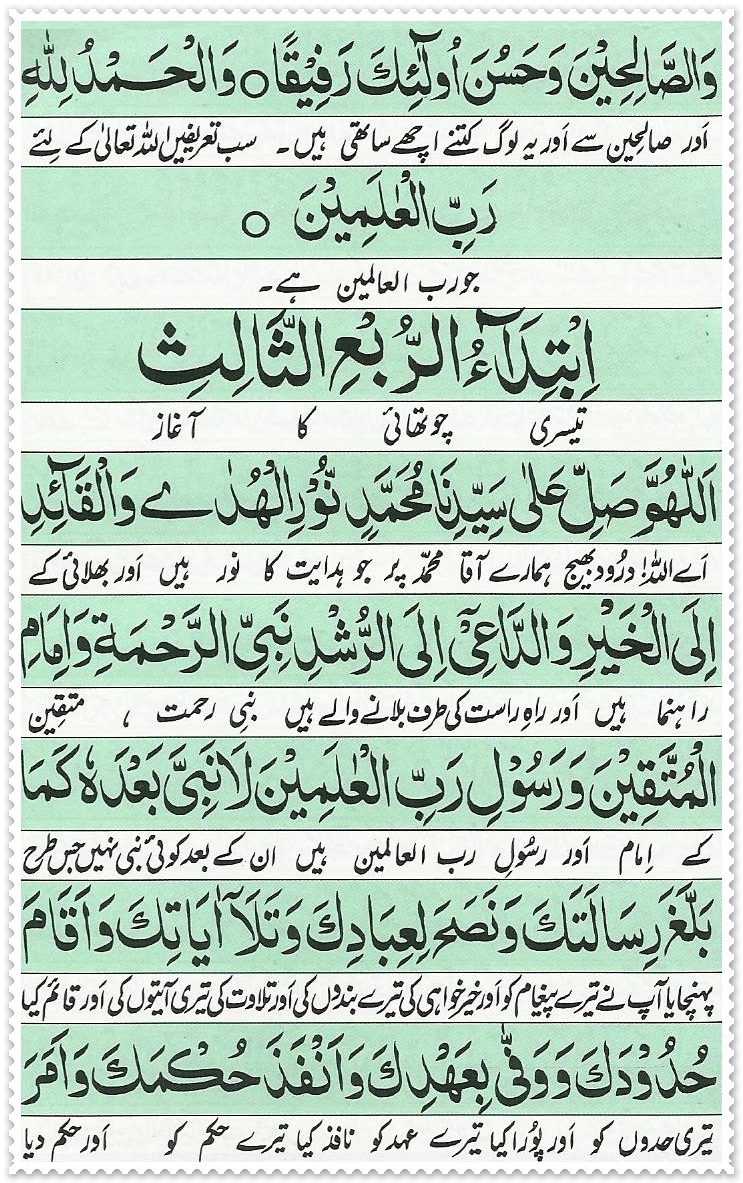 وَالصَّالِحِيْنَ وَحَسُنَ اُولٰٓئِكَ رَفِيْقًا ○ وَالْحَمْدُ لِلّٰهِ
اَور صالحین سے اَور یہ لوگ کتنے اچھے ساتھی ہیں۔ سب تعریفیں اللہ تعالیٰ کے لئے
رَبِّ الْعٰلَمِيْنَ ○
جو رب العالمین ہے۔
اِبْتِدَآءُ الرُّبْعِ الثَّالِثِ
تیسری چوتھائی کا آغاز
اَللّٰهُمَّ صَلِّ عَلٰى سَيِّدِنَا مُحَمَّدٍ نُّوْرِ الْهُدٰے وَالْقَآئِدِ
اَے اللہ! درُود بھیج ہمارے آقا محمّد پر جو ہدایت کا نور ہیں اَور بھلائی کے
اِلَى الْخَيْرِ وَالدَّاعِيْٓ اِلَى الرُّشْدِ نَبِيِّ الرَّحْمَةِ وَاِمَامِ
راہنما ہیں اَور راہِ راست کی طرف بلانے والے ہیں نبیِ رحمت ، متقین
الْمُتَّقِيْنَ وَرَسُوْلِ رَبِّ الْعٰلَمِيْنَ لَا نَبِيَّ بَعْدَهٗ كَمَا
کے اِمام اَور رسُولِ رب العالمین ہیں ان کے بعد کوئی نبی نہیں جس طرح
بَلَّغَ رِسَالَتَكَ وَنَصَحَ لِعِبَادِكَ وَتَلَآ اٰيَاتِكَ وَاَقَامَ
پہنچایا آپ نے تیرے پیغام کو اَور خیر خواہی کی تیرے بندوں کی اَور تلاوت کی تیری آیتوں کی اَور قائم کیا
حُدُوْدَكَ وَوَفّٰى بِعَهْدِكَ وَاَنْفَذَ حُكْمَكَ وَاَمَرَ
تیری حدوں کو اَور پُورا کیا تیرے عہد کو نافذ کیا تیرے حکم کو اَور حکم دیا